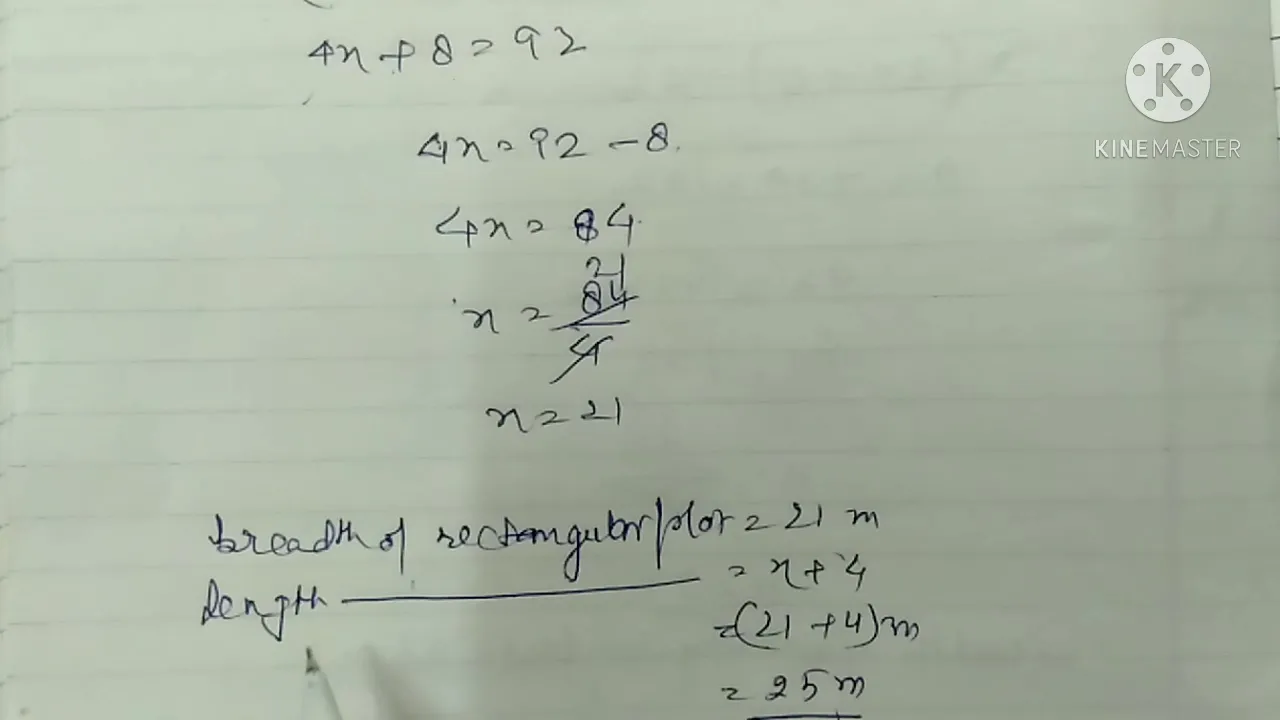 4x + 8 = 92
K
KINEMASTER
4x = 92 - 8.
4x = 84.
21
x = 84
4
x = 21
breadth of rectangular plot = 21 m
length ———— = x + 4
= (21 + 4) m
= 25 m